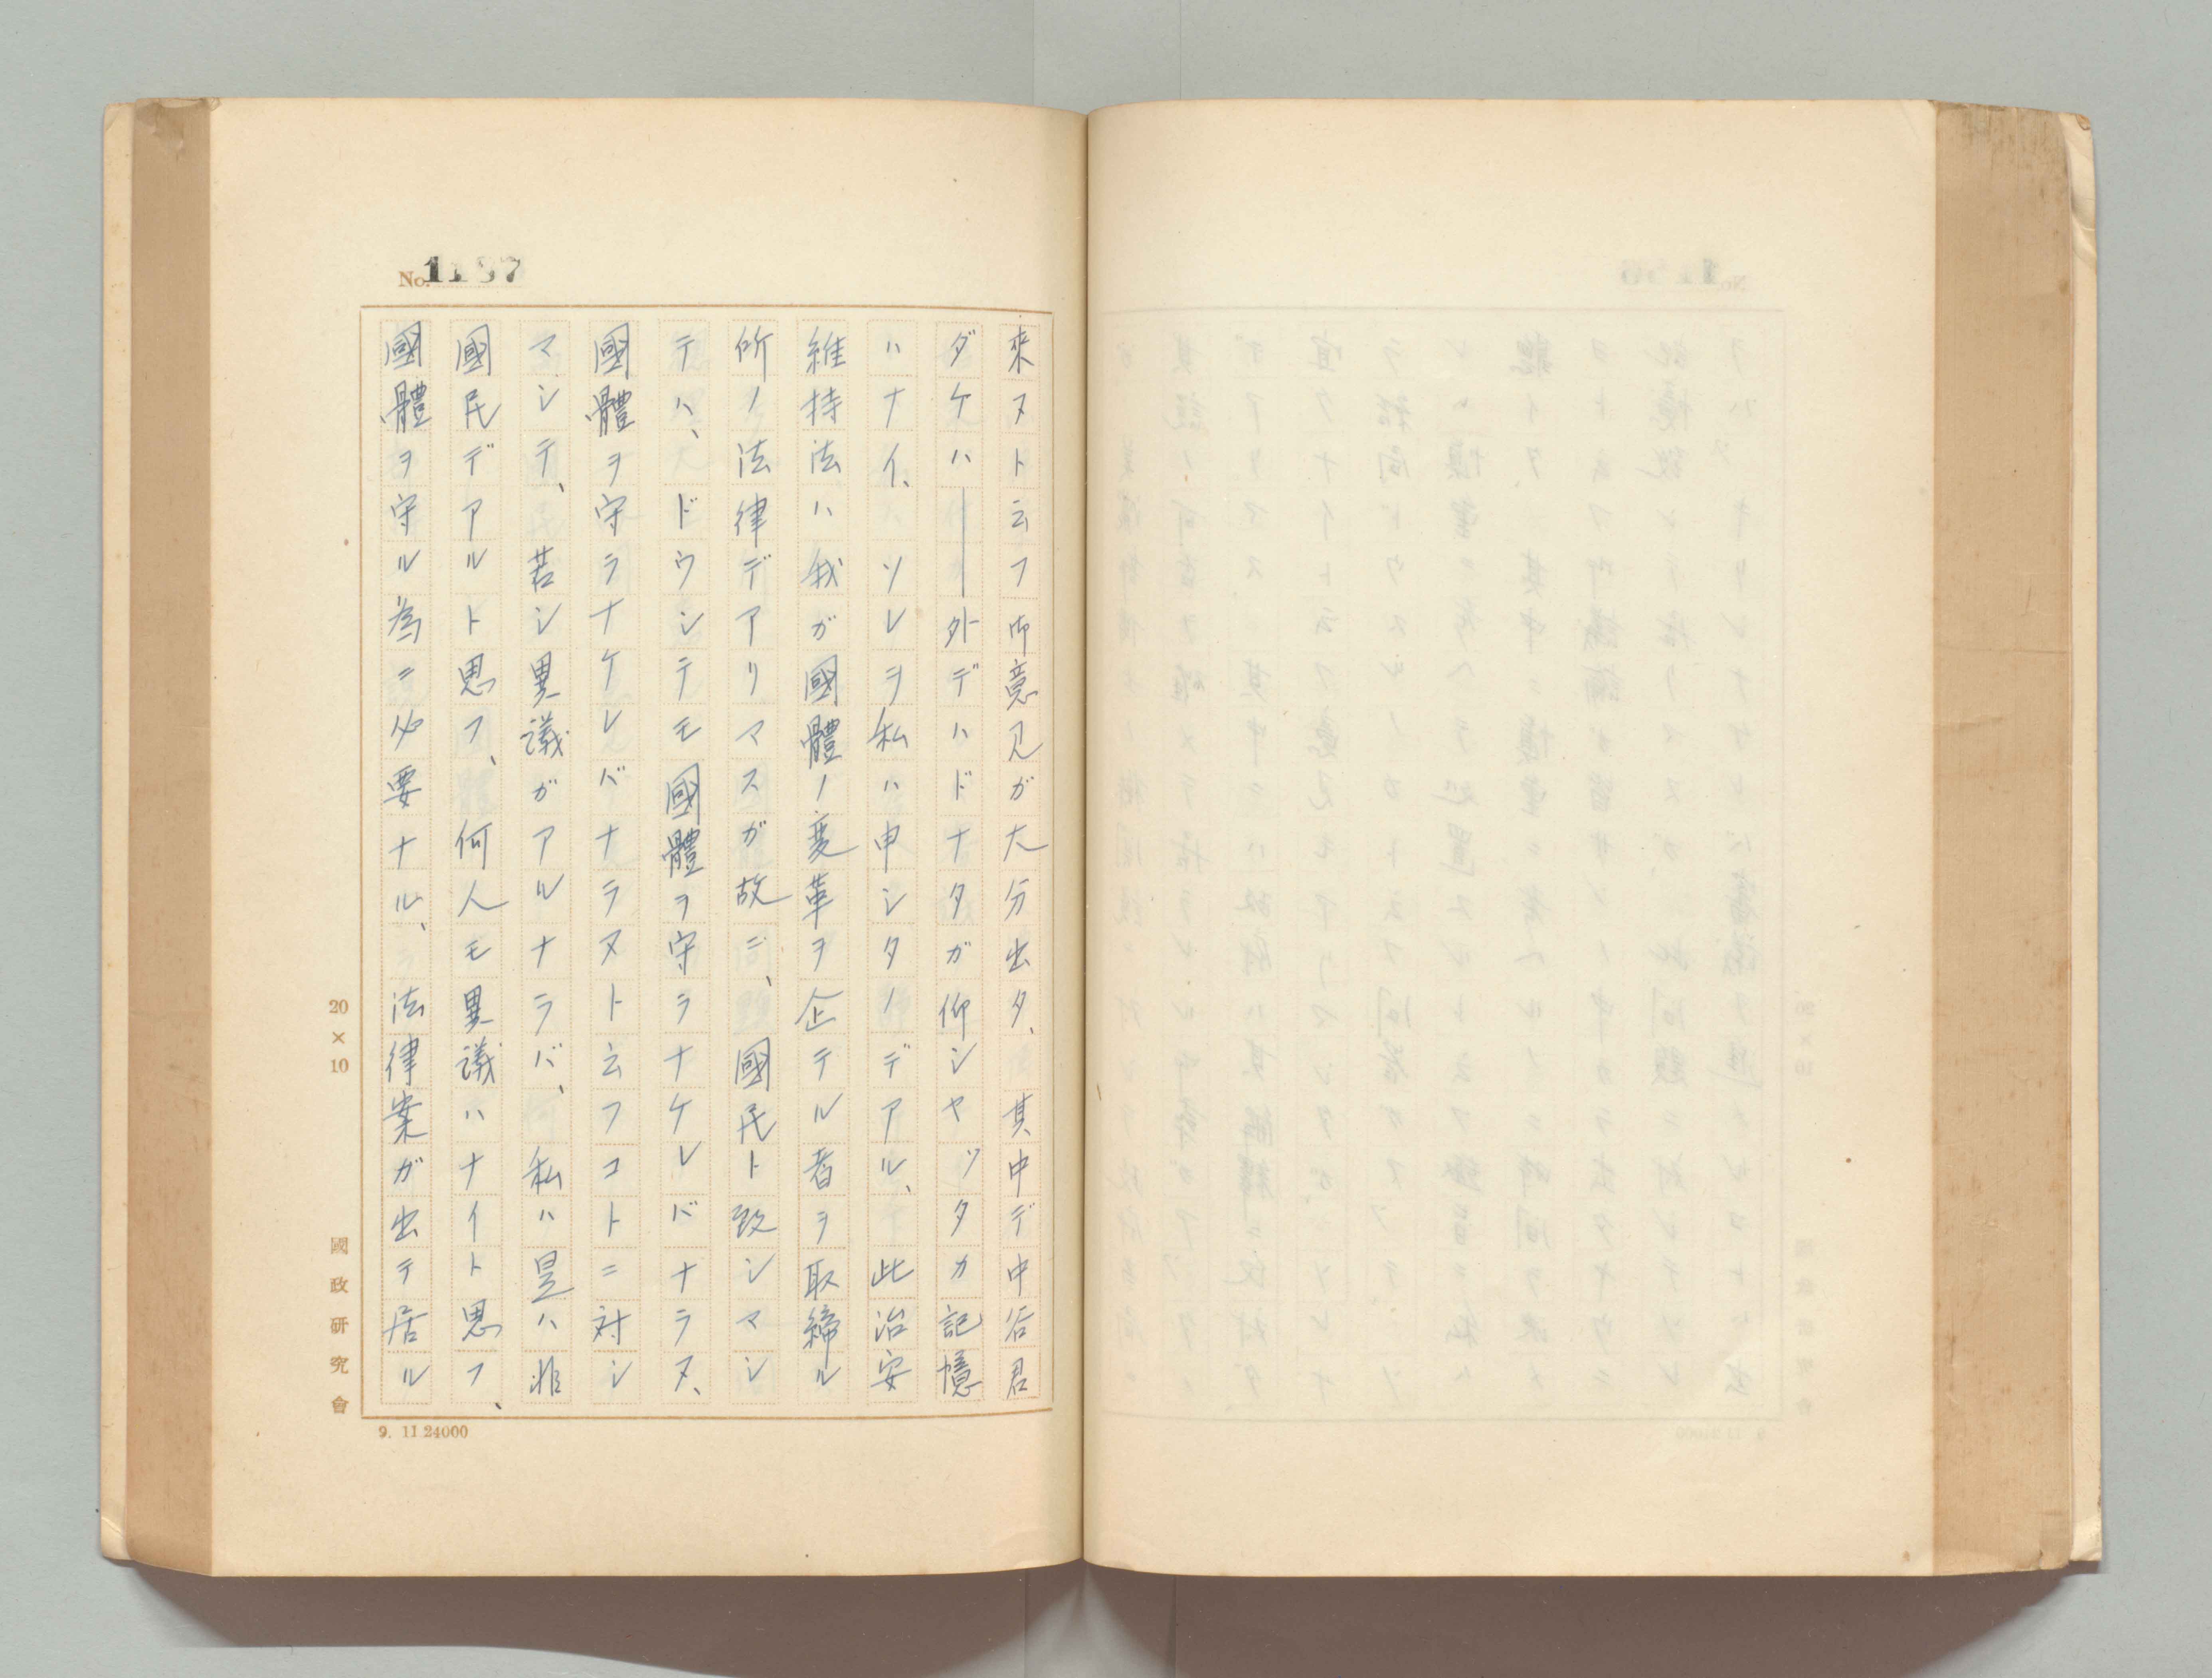 No. 1187
來ヌト云フ御意見ガ大分出タ、其中デ中谷君
ダケハ――外デハドナタガ仰シヤツタカ記憶
ハナイ、ソレヲ私ハ申シタノデアル、此治安
維持法ハ我ガ國體ノ変革ヲ企テル者ヲ取締ル
所ノ法律デアリマスガ故ニ、國民ト致シマシ
テハ、ドウシテモ國體ヲ守ラナケレバナラヌ、
國體ヲ守ラナケレバナラヌト云フコトニ対シ
マシテ、若シ異議ガアルナラバ、私ハ是ハ非
國民デアルト思フ、何人モ異議ハナイト思フ、
國體ヲ守ル為ニ必要ナル、法律案ガ出テ居ル
20×10
國政研究會
9. 11.24000